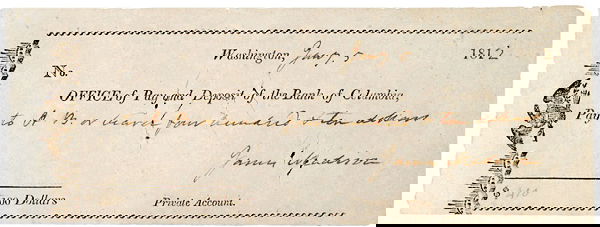 Washington, 5 1812
No.
OFFICE of Pay and Deposit, of the Bank of Columbia,
Pay
or bearer, four hundred & ten dollars
James Madison
00 Dollars. Private Account.